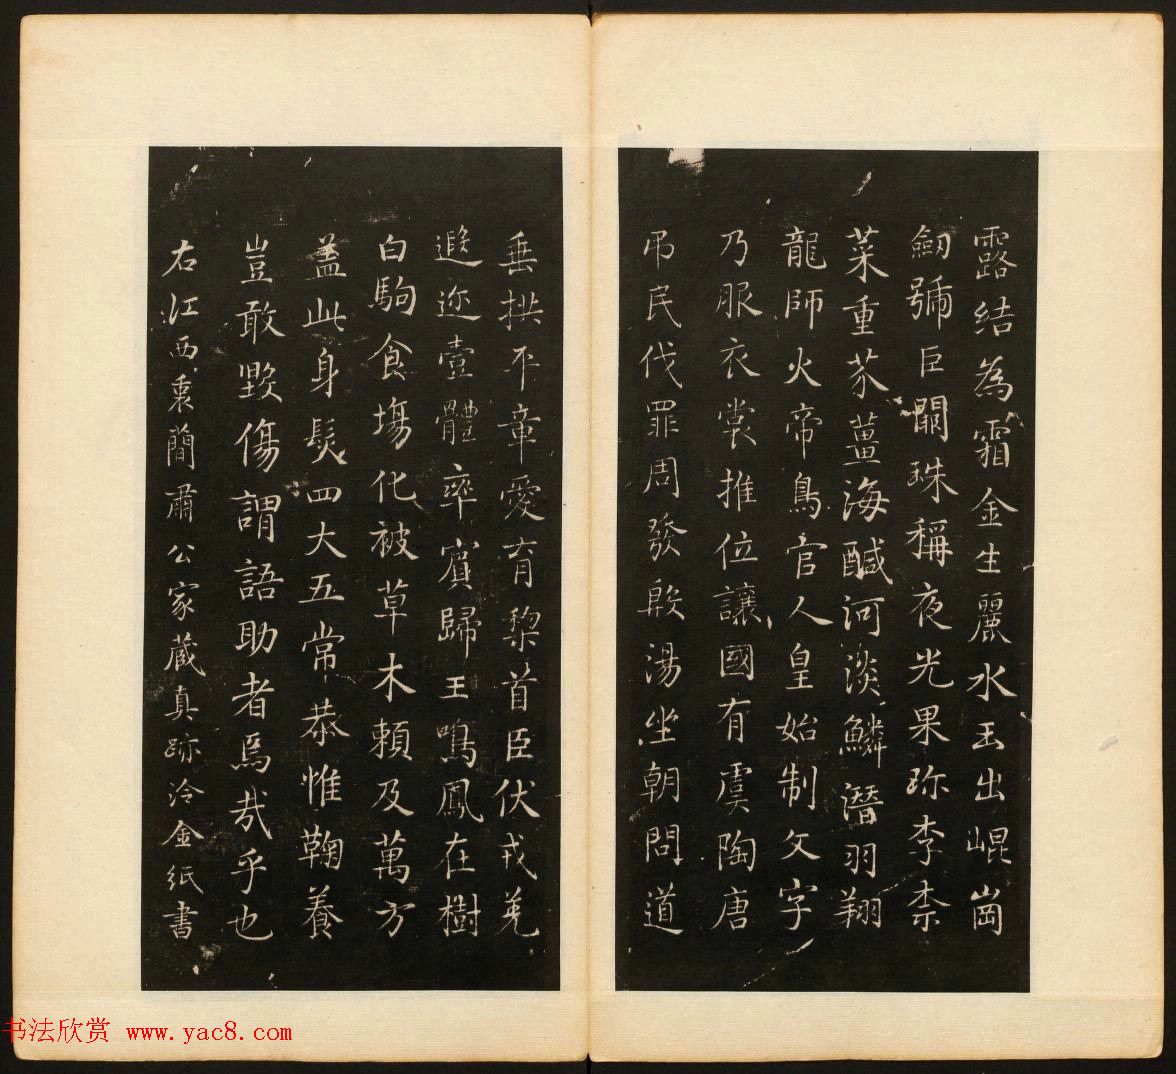 露結為霜金生麗水玉出崐崗
劒號巨闕珠稱夜光果珎李柰
菜重芥薑海醎河淡鱗潛羽翔
龍師火帝鳥官人皇始制文字
乃服衣裳推位讓國有虞陶唐
吊民伐罪周發殷湯坐朝問道
垂拱平章愛育黎首臣伏戎羌
遐迩壹體率賓歸王鳴鳳在樹
白駒食場化被草木賴及萬方
盖此身髮四大五常恭惟鞠養
豈敢毀傷謂語助者焉哉乎也
右江西裒蕳肅公家蔵真跡泠金紙書
书法欣赏 www.yac8.com